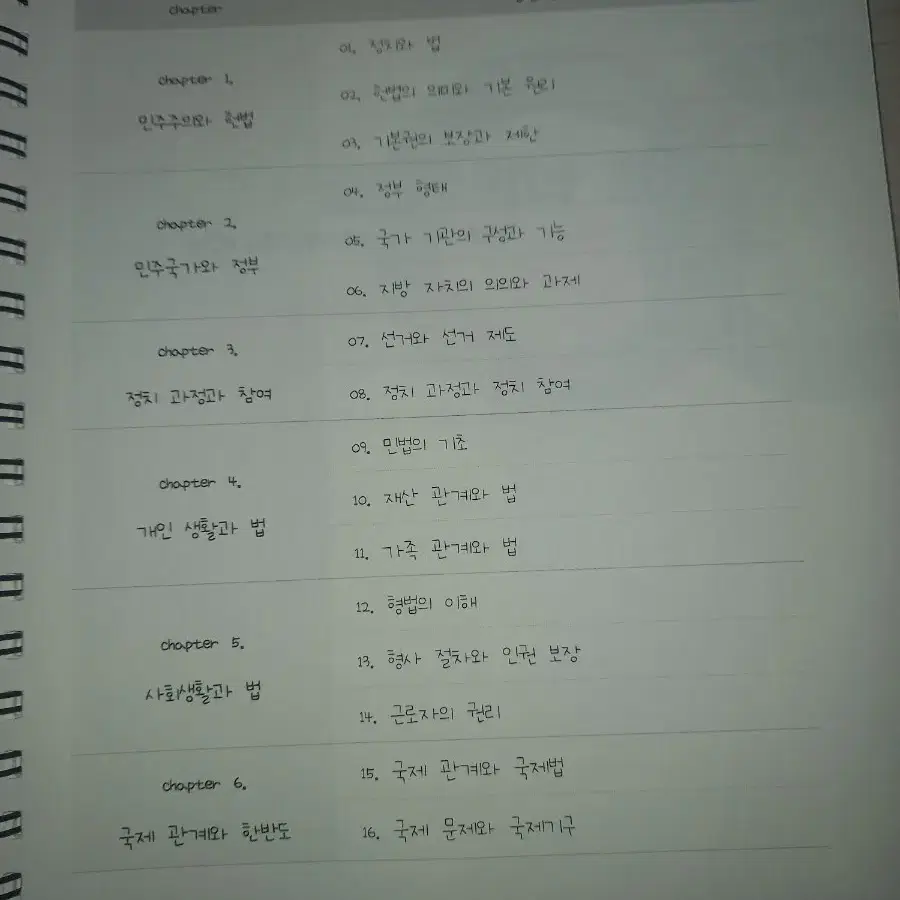 chapter
chapter 1.
민주주의와 헌법
01. 정치와 법
02. 헌법의 의미와 기본 원리
03. 기본권의 보장과 제한
chapter 2.
민주국가와 정부
04. 정부 형태
05. 국가 기관의 구성과 기능
06. 지방 자치의 의의와 과제
chapter 3.
정치 과정과 참여
07. 선거와 선거 제도
08. 정치 과정과 정치 참여
chapter 4.
개인 생활과 법
09. 민법의 기초
10. 재산 관계와 법
11. 가족 관계와 법
chapter 5.
사회생활과 법
12. 형법의 이해
13. 형사 절차와 인권 보장
14. 근로자의 권리
chapter 6.
국제 관계와 한반도
15. 국제 관계와 국제법
16. 국제 문제와 국제기구